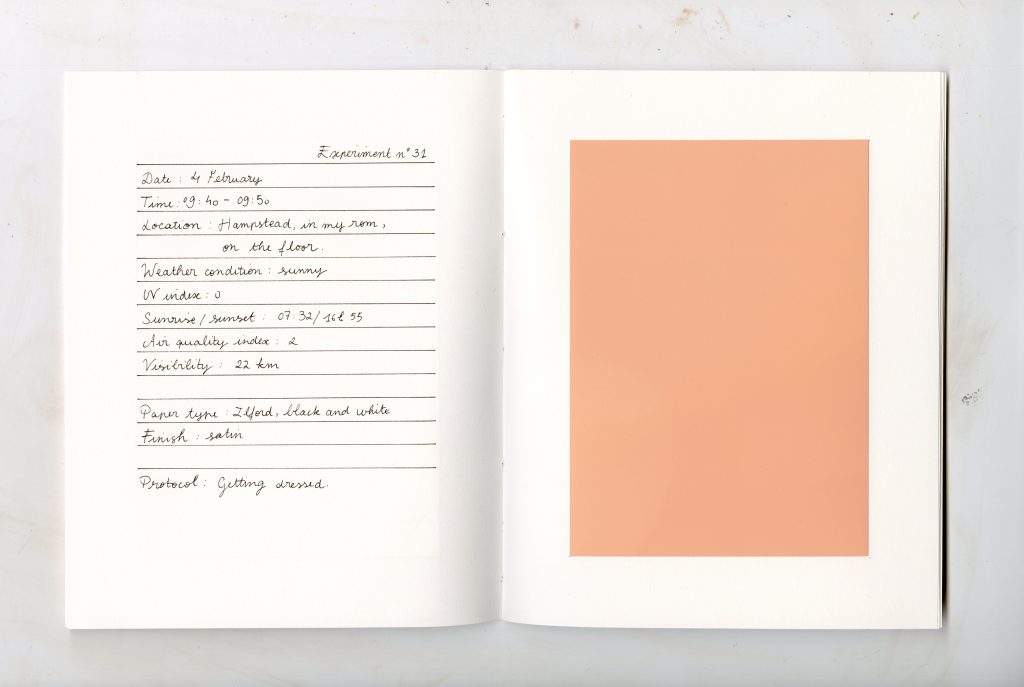 Experiment n° 31
Date : 4 February
Time : 09:40 - 09:50
Location : Hampstead, in my rom,
on the floor.
Weather condition : sunny
UV index : 0
Sunrise / sunset : 07:32 / 16h 55
Air quality index : 2
Visibility : 22 km
Paper type : Ilford, black and white
Finish : satin
Protocol : Getting dressed.